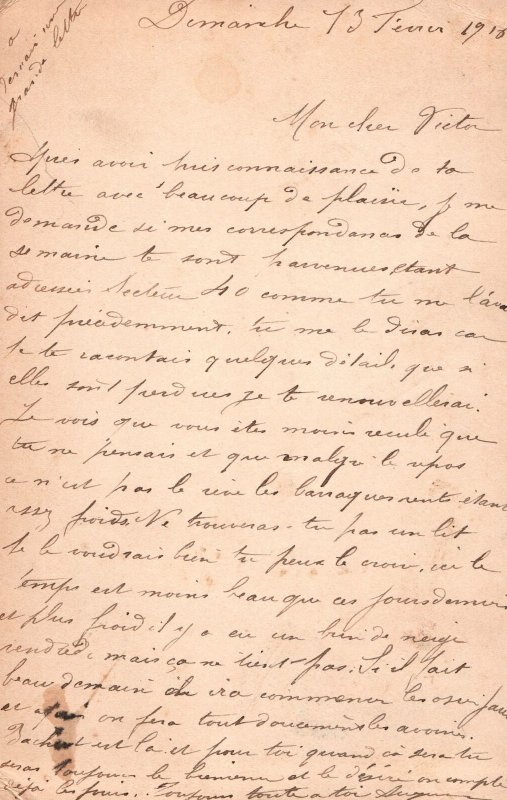 Dimanche 13 Fevrier 1916
a
demain une
grande lettre
Mon cher Victor
Apres avoir pris connaissance de ta
lettre avec beaucoup de plaisir, je me
demande si mes correspondances de la
semaine te sont parvenues étant
adressées Secteur 40 comme tu me l'avais
dit précédemment, tu me le diras car
je te racontais quelques détails que si
elles sont perdues je te renouvellerai.
Je vois que vous êtes moins reculé que
tu ne pensais et que malgré le repos
ce n'est pas le rêve les barraquements étant
assez froids. Ne trouveras-tu pas un lit
je le voudrais bien tu peux le croir, ici le
temps est moins beau que ces jours derniers
et plus froid il y a eu un brin de neige
vendredi, mais ça ne tient pas. Si il fait
beau demain ira commencer les
et on fera tout doucement les avoines.
est là et pour toi quand ça sera tu
seras toujours le bienvenu et le désiré on compte
déjà les jours. Toujours toute a toi